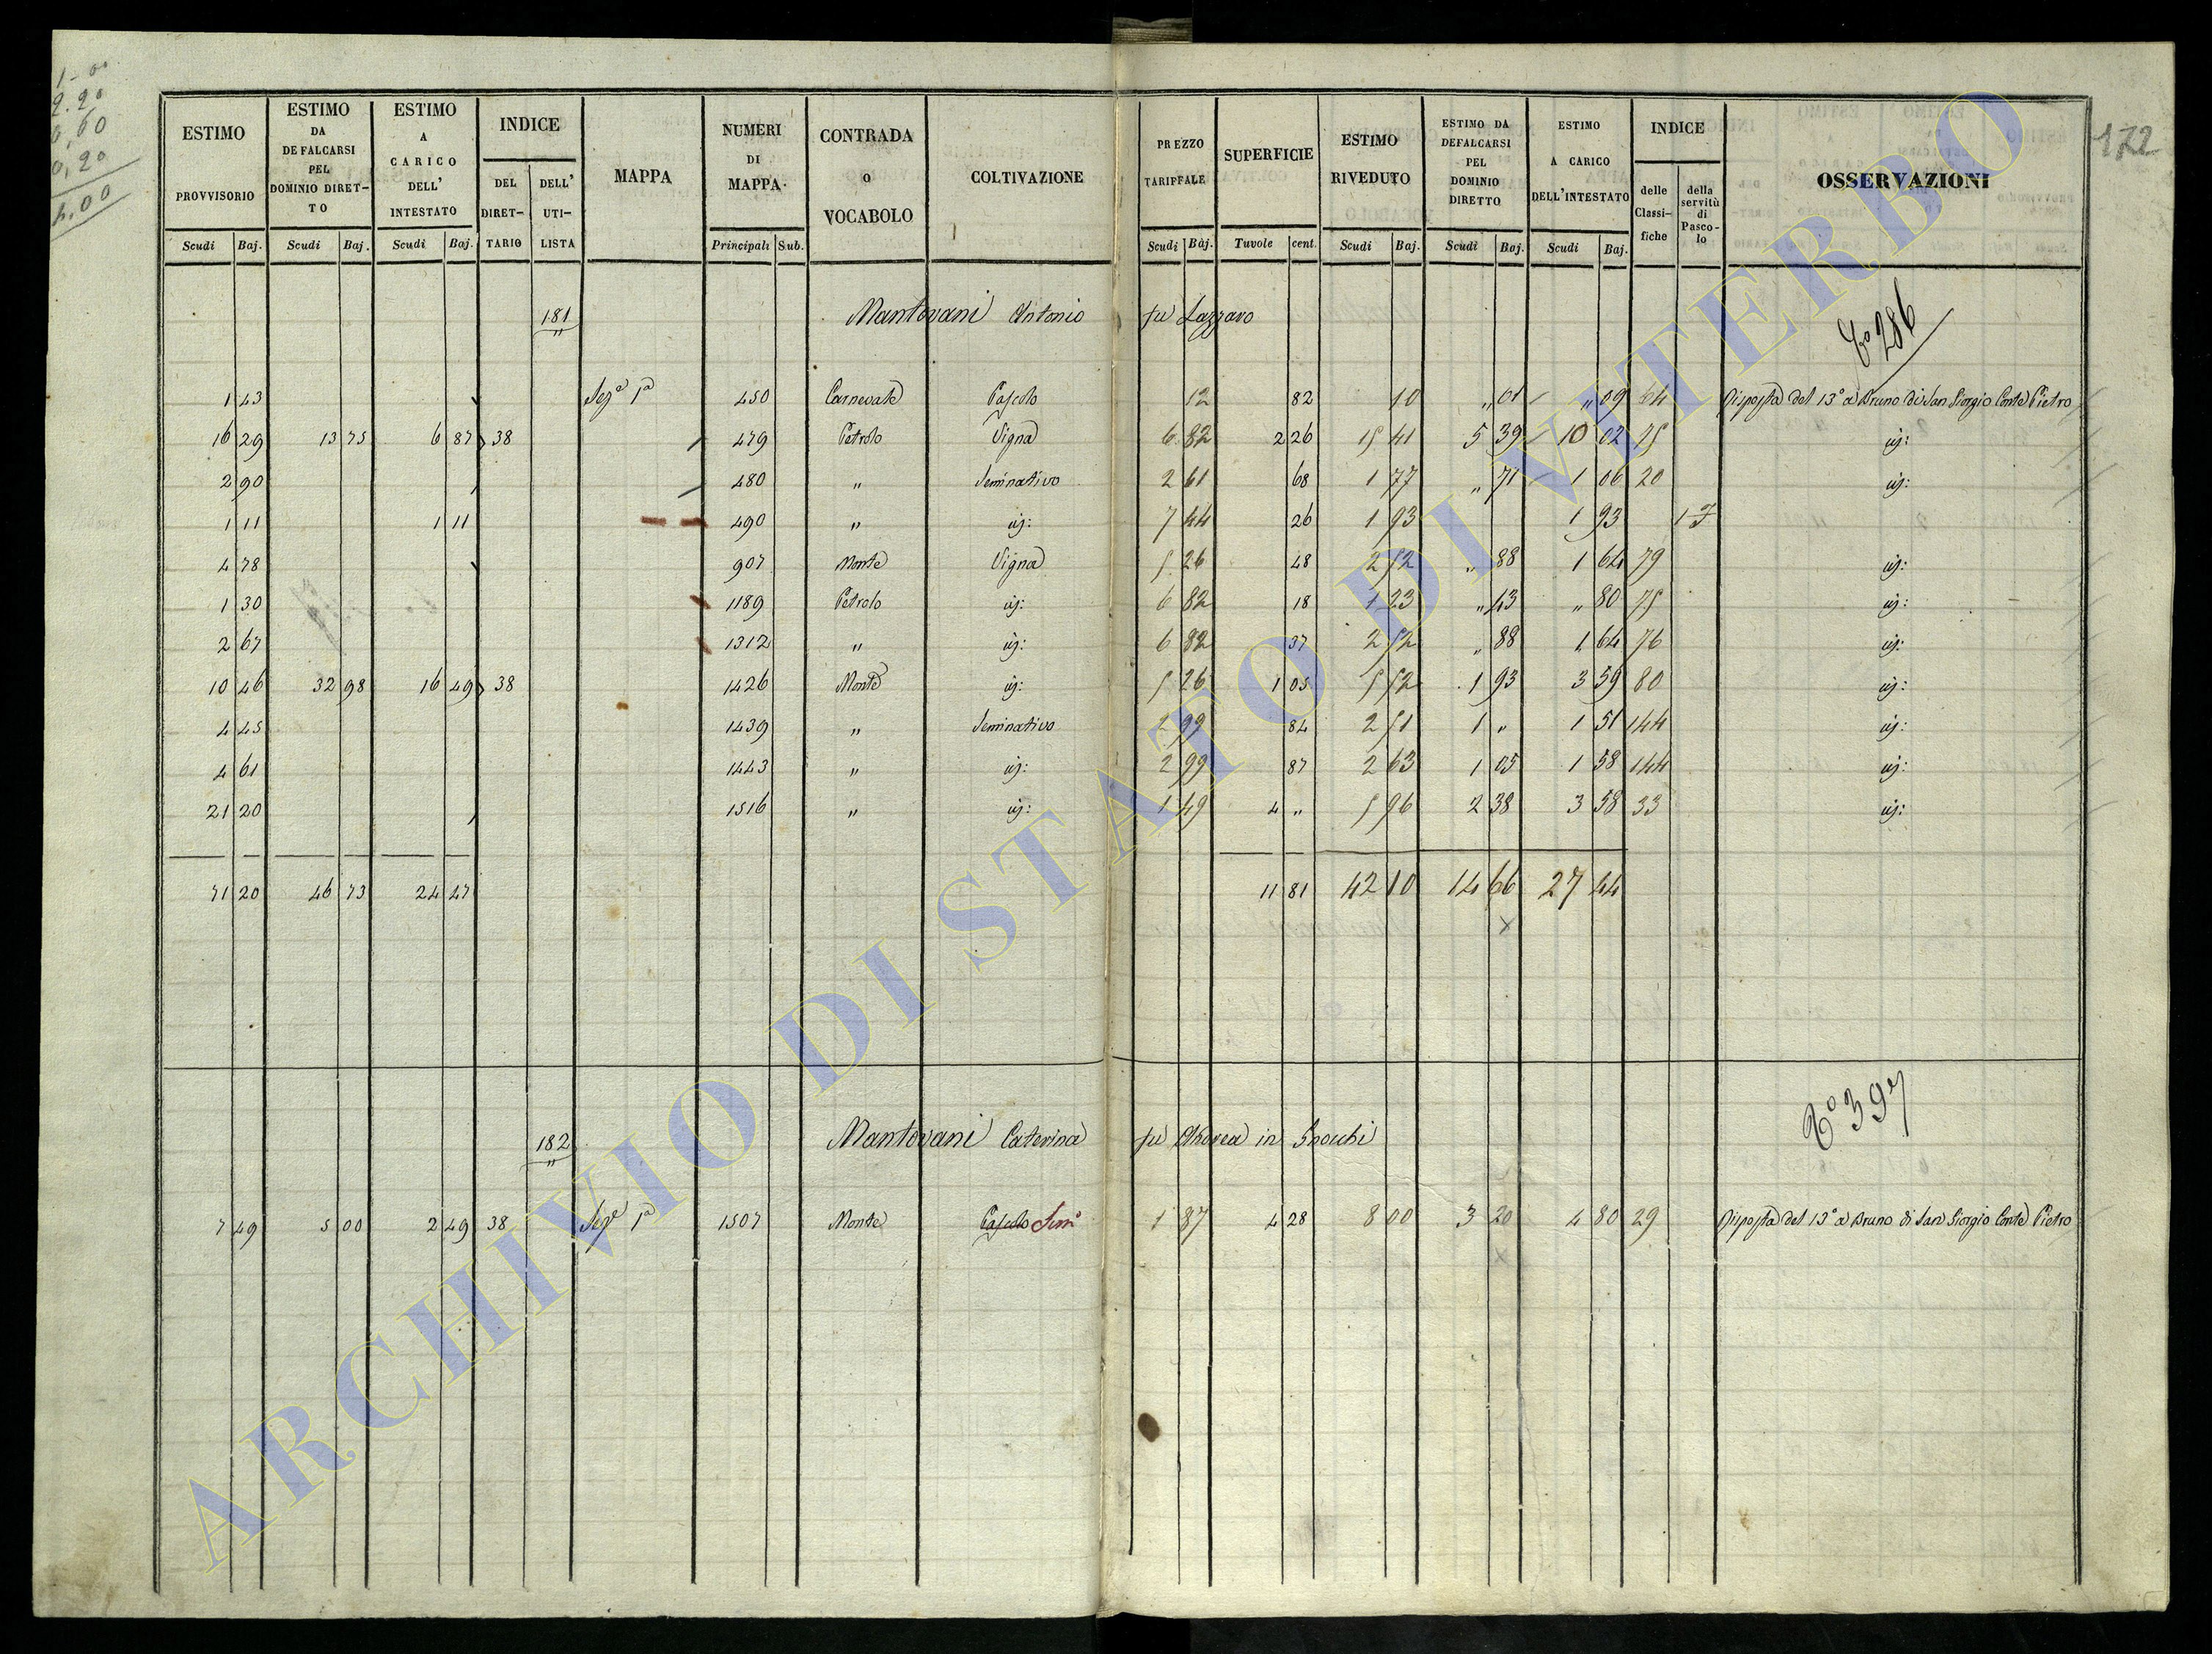 1 - 00
2.20
0,60
0,20
172
ESTIMO PROVVISORIO
ESTIMO DA DEFALCARSI PEL DOMINIO DIRETTO
ESTIMO A CARICO DELL' INTESTATO
INDICE
DEL DIRETTARIO
DELL' UTILISTA
MAPPA
NUMERI DI MAPPA.
CONTRADA O VOCABOLO
COLTIVAZIONE
PREZZO TARIFFALE
SUPERFICIE
ESTIMO RIVEDUTO
ESTIMO DA DEFALCARSI PEL DOMINIO DIRETTO
ESTIMO A CARICO DELL'INTESTATO
INDICE
delle Classifiche
della servitù di Pascolo
OSSERVAZIONI
Scudi Baj. Scudi Baj. Scudi Baj. Principali Sub. Scudi Baj. Tavole cent. Scudi Baj. Scudi Baj. Scudi Baj.
181 Mantovani Antonio fu Lazzaro
286
1 43 Sez.e 1a 450 Carnevale Pascolo 12 82 10 " 01 " 09 64 Risposta del 13° a Bruno di San Giorgio Conte Pietro
16 29 13 75 6 87 38 479 Petrolo Vigna 6 82 2 26 15 41 5 39 10 02 75 id:
2 90 480 " Seminativo 2 61 68 1 77 " 71 1 06 20 id:
1 11 1 11 490 " id: 7 44 26 1 93 1 93 1
4 78 907 Monte Vigna 5 26 48 2 52 " 88 1 64 79 id:
1 30 1189 Petrolo id: 6 82 18 1 23 " 43 " 80 75 id:
2 67 1312 " id: 6 82 37 2 52 " 88 1 64 76 id:
10 46 32 98 16 49 38 1426 Monte id: 5 26 1 05 5 52 1 93 3 59 80 id:
4 45 1439 " Seminativo 2 99 84 2 51 1 " 1 51 144 id:
4 61 1443 " id: 2 99 87 2 63 1 05 1 58 144 id:
21 20 1516 " id: 1 49 4 " 5 96 2 38 3 58 33 id:
71 20 46 73 24 47 11 81 42 10 14 66 27 44
x
397
182 Mantovani Caterina fu Andrea in Gnocchi
7 49 5 00 2 49 38 Sez.e 1a 1507 Monte Pascolo Sem.o 1 87 4 28 8 00 3 20 4 80 29 Risposta del 13° a Bruno di San Giorgio Conte Pietro
x
ARCHIVIO DI STATO DI VITERBO